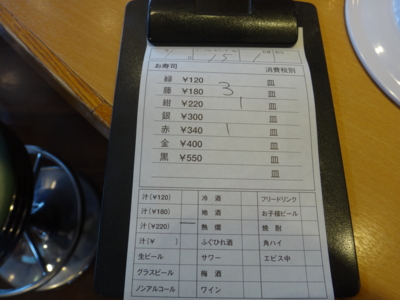 151
お寿司 消費税別
緑 ¥120 皿
藤 ¥180 3 皿
紺 ¥220 1 皿
銀 ¥300 皿
赤 ¥340 1 皿
金 ¥400 皿
黒 ¥550 皿
皿
汁(¥120) 冷酒 フリードリンク
汁(¥180) 地酒 お子様ビール
汁(¥220) 熱燗 焼酎
汁(¥ ) ふぐひれ酒 角ハイ
生ビール サワー エビス中
グラスビール 梅酒
ノンアルコール ワイン